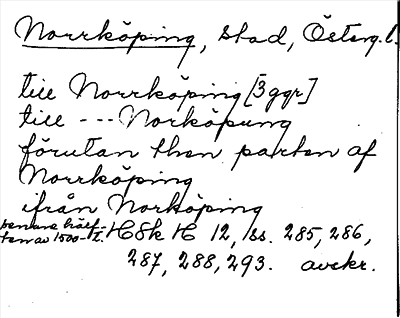 Norrköping, stad, Österg.l.
till Norrköping [3 ggr]
till --- Norköpung
förutan then parten af
Norrköping
ifrån Norköping
senare hälf-
ten av 1500-t. HSk H 12, ss. 285, 286,
287, 288, 293. avskr.